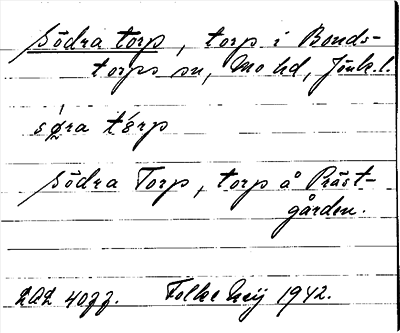 Södra torp, torp i Bonds-
torps sn, Mo hd, Jönk. l.
søra tɷrp
Södra Torp, torp å Präst-
gården.
Folke 1942.